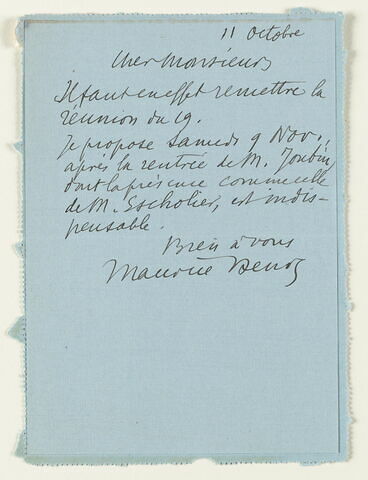 11 Octobre
Cher Monsieur,
Il faut en effet remettre la
réunion du 19.
Je propose Samedi 9 Nov.,
après la rentrée de M. Joubin,
dont la présence comme celle
de M. Escholier, est indis-
pensable.
Bien à vous
Maurice Denis